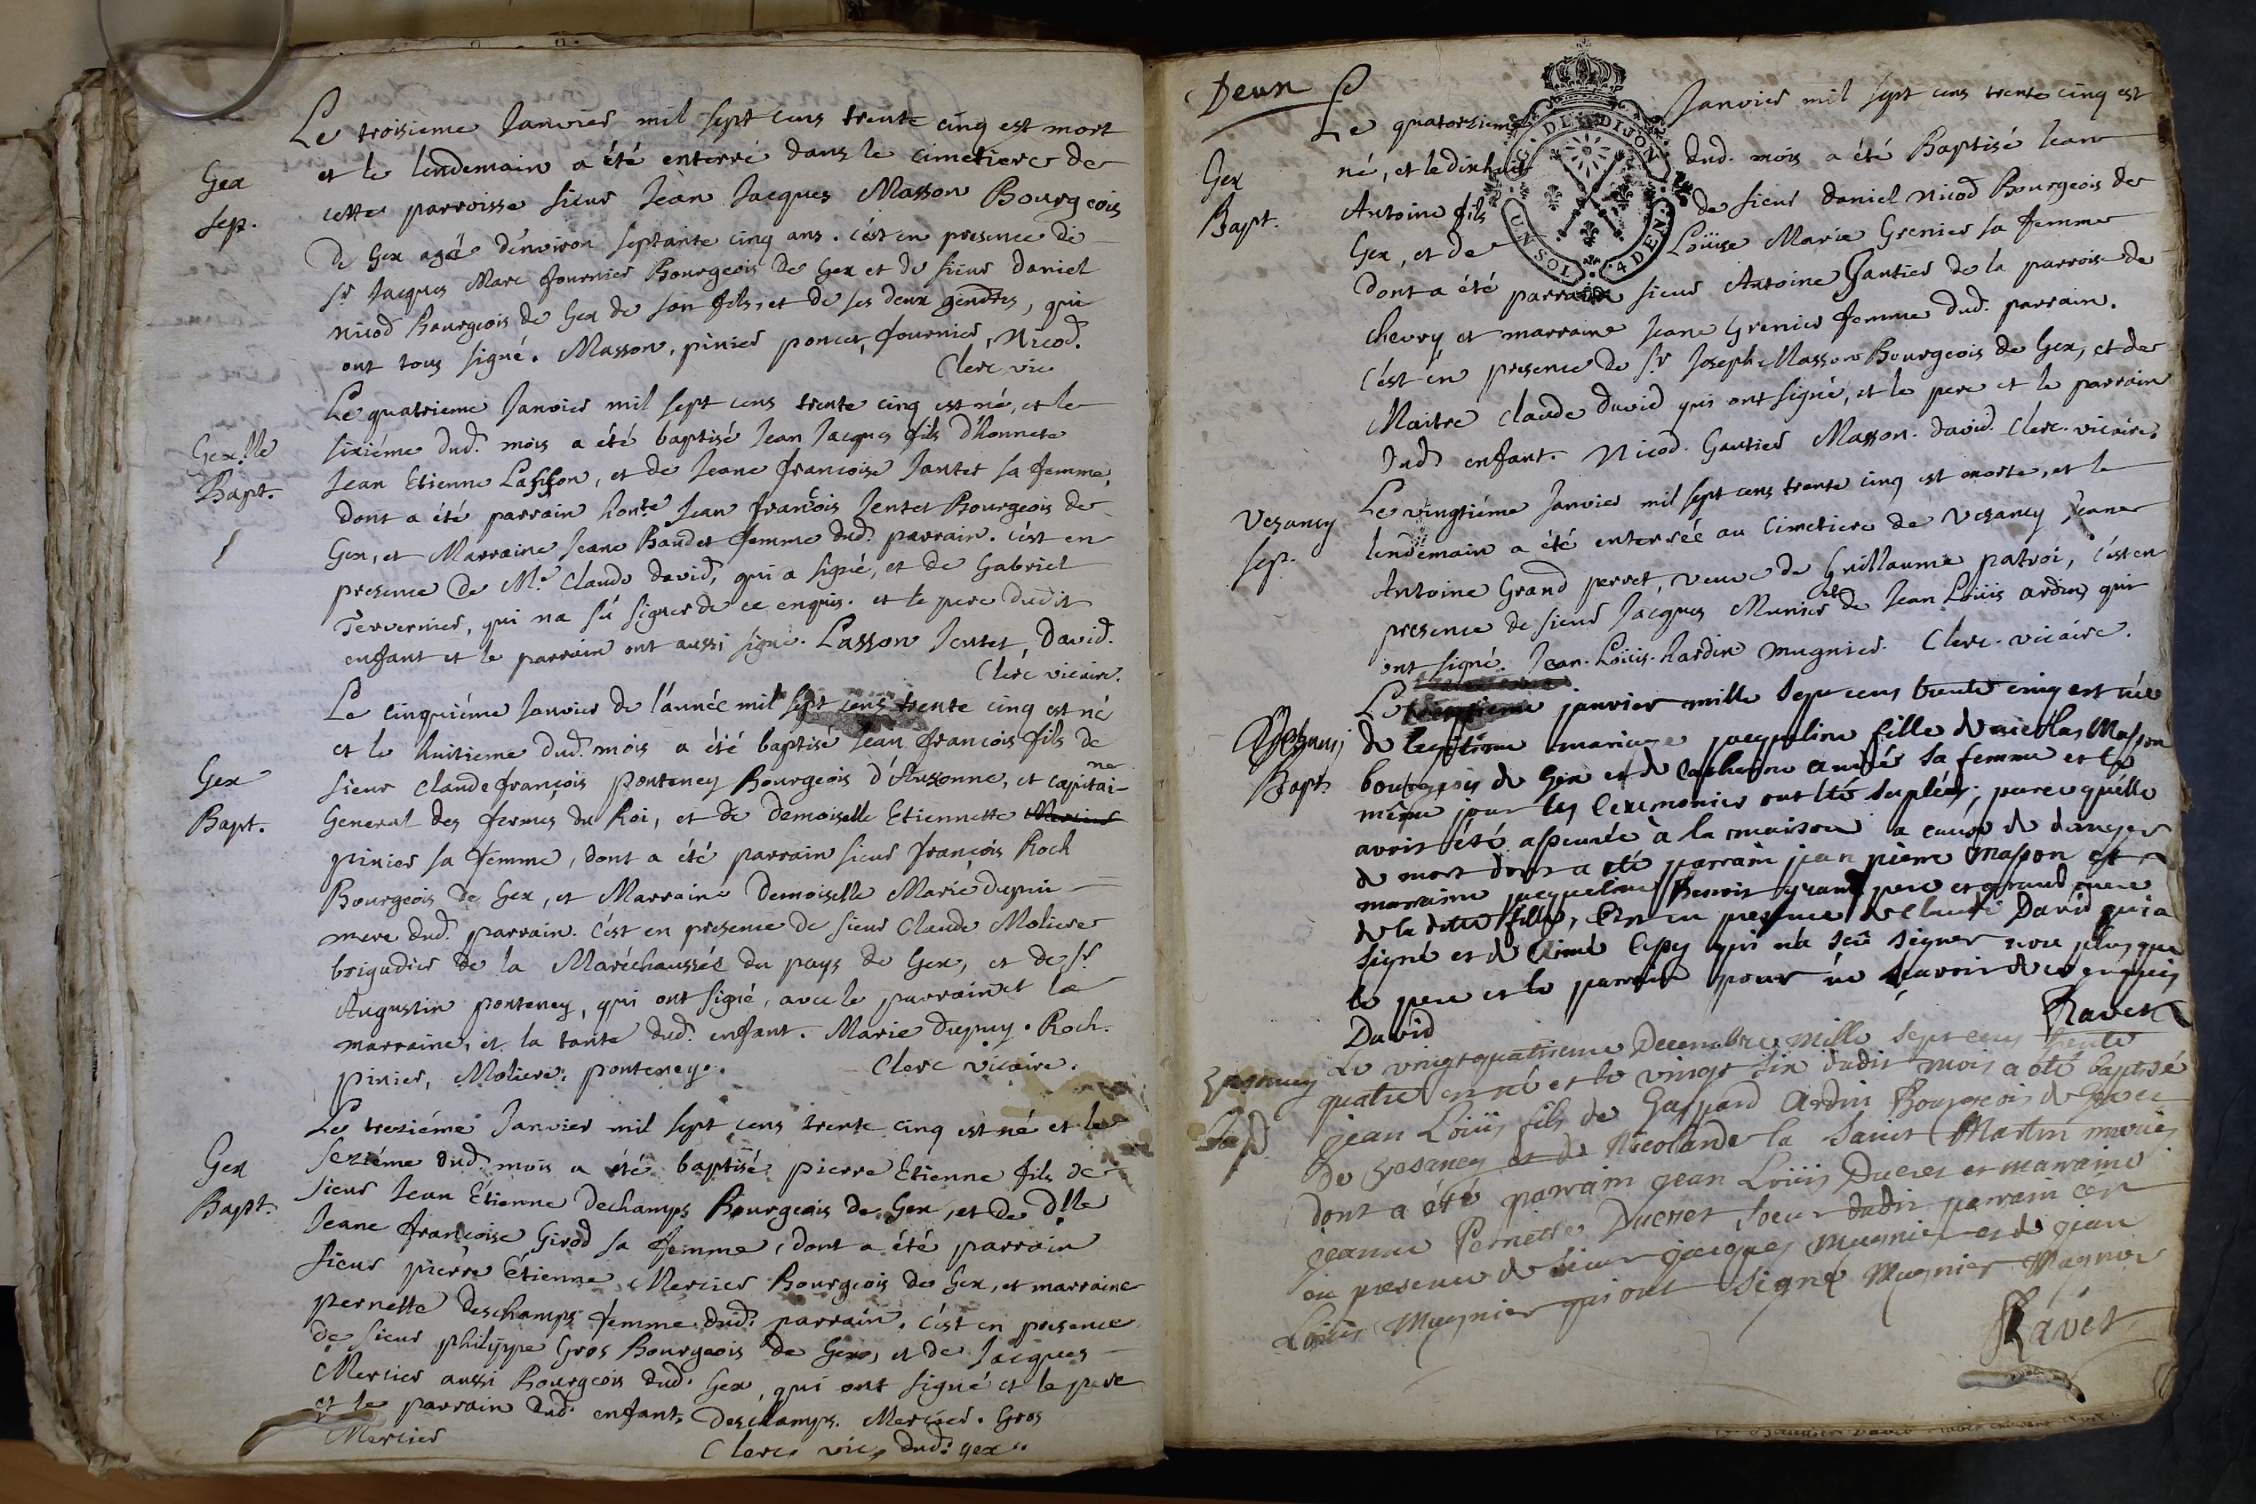 Le troisieme Janvier mil sept cens trente cinq est mort
et le lendemain a été enterré dans le cimetiere de
Gex
sep.
cette parroisse sieur Jean Jacques Masson Bourgeois
de Gex agé d'environ septante cinq ans. c'est en presence de
sr Jacques Marc fournier Bourgeois de Gex et de sieur daniel
nicod Bourgeois de Gex de son fils, et de ses deux gendres, qui
ont tous signé. Masson, pinier poncet, fournier, Nicod.
Clerc vic
Le quatrieme Janvier mil sept cens trente cinq est né, et le
Gex.
Bapt.
sixiéme dud. mois a été baptisé Jean Jacques fils d'honnete
Jean Etienne Lasson, et de Jeane francoise Jantet sa femme,
dont a été parrain honte Jean francois Jentet Bourgeois de
Gex, et Marraine Jeane Baudet femme dud. parrain. c'est en
presence de Me Claude david, qui a signé, et de Gabriel
Tervernier, qui na sû signer de ce enquis. et le pere dudit
enfant et le parrain ont aussi signé. Lasson Jentet, David.
Clerc vicaire.
Le cinquiéme Janvier de l'année mil sept cens trente cinq est né
et le huitieme dud. mois a été baptisé Jean francois fils de
Gex
Bapt.
sieur claude françois ponteney Bourgeois d'Auxonne, et capitai-ne
General des fermes du Roi, et de Demoiselle Etiennette Mercier
pinier sa femme, dont a été parrain sieur françois Roch
Bourgeois de Gex, et Marraine Demoiselle Marie dupui
mere dud. parrain. c'est en presence de sieur Claude Moliere
brigadier de la Maréchaussée du pays de Gex, et de sr
Augustin ponteney, qui ont signé, avec le parrain et la
marraine, et la tante dud. enfant. Marie dupuy. Roch.
pinier, Moliere, ponteney. Clerc vicaire.
Le treziéme Janvier mil sept cens trente cinq est né et le
Gex
Bapt.
seziéme dud. mois a été baptisé pierre Etienne fils de
sieur Jean Etienne dechamps Bourgeois de Gex, et de dlle
Jeane françoise Girod sa femme, dont a été parrain
sieur pierre Etienne Mercier Bourgeois de Gex, et marraine
pernette deschamps femme dud. parrain. C'est en presence
de sieur philippe Gros Bourgeois de Gex, et de Jacques
Mercier aussi Bourgeois dud. Gex, qui ont signé et le pere
et le parrain dud. enfant. Deschamps. Mercier. Gros
Mercier Clerc vic. dud. gex.
Deux
G. DE DIJON
UN SOL 4 DEN.
Le quatorzieme Janvier mil sept cens trente cinq est
Gex
Bapt.
né, et le dixhuit dud. mois a été Baptisé Jean
Antoine fils de sieur daniel nicod Bourgeois de
Gex, et de Loüise Marie Grenier sa femme
dont a été parrain sieur Antoine Gautier de la parroisse de
chevry et marraine Jeane Grenier femme dud. parrain.
C'est en presence de sr Joseph Masson Bourgeois de Gex, et de
Maitre claude david qui ont signé, et le pere et le parrain
dud. enfant. Nicod. Gautier Masson. david. Clerc. vicaire.
Vesancy
sep.
Le vingtiéme Janvier mil sept cens trente cinq est morte, et le
lendemain a été enterrée au cimetiere de Vesancy Jeane
Antoine Grand perret, veuve de Guillaume patroi, c'est en
presence de sieur Jacques Munier et de Jean Loüis ardin, qui
ont signé. Jean. Loüis. hardin mugnier. Clerc. vicaire.
Bapt
Le janvier mille sept cens trente cinq est née
de legitime mariage jacqueline fille de nicollas Masson
bourgeois de Gex et de Catherine sa femme et le
même jour les Ceremonies ont été suplées, parce qu'elle
avoit été à la maison a cause de danger
de mort dont a été parrain jean pierre Masson et
marraine jacqueline Benoit grand pere et grand mere
de la ditte fille, C'est en presence de Claude David qui a
signé et de Aimé qui n'a sçû signer non plus que
le pere et le parrain pour ne sçavoir de ce enquis
David Ravet
Vesancy
Bap
Le vingtquatrieme Decembre mille sept cens trente
quatre est né et le vingt six dudit mois a été baptisé
jean Loüis fils de Gaspard Ardin Bourgeois de Gex et
de Vesancy et de Nicolarde la saint Martin mariés
dont a été parrain jean Loüis Ducret et marraine
jeanne Pernette Ducret soeur dudit parrain c'est
en presence de sieur jacques mugnier et de jean
Loüis Mugnier qui ont signé Mugnier Magnier
Ravet